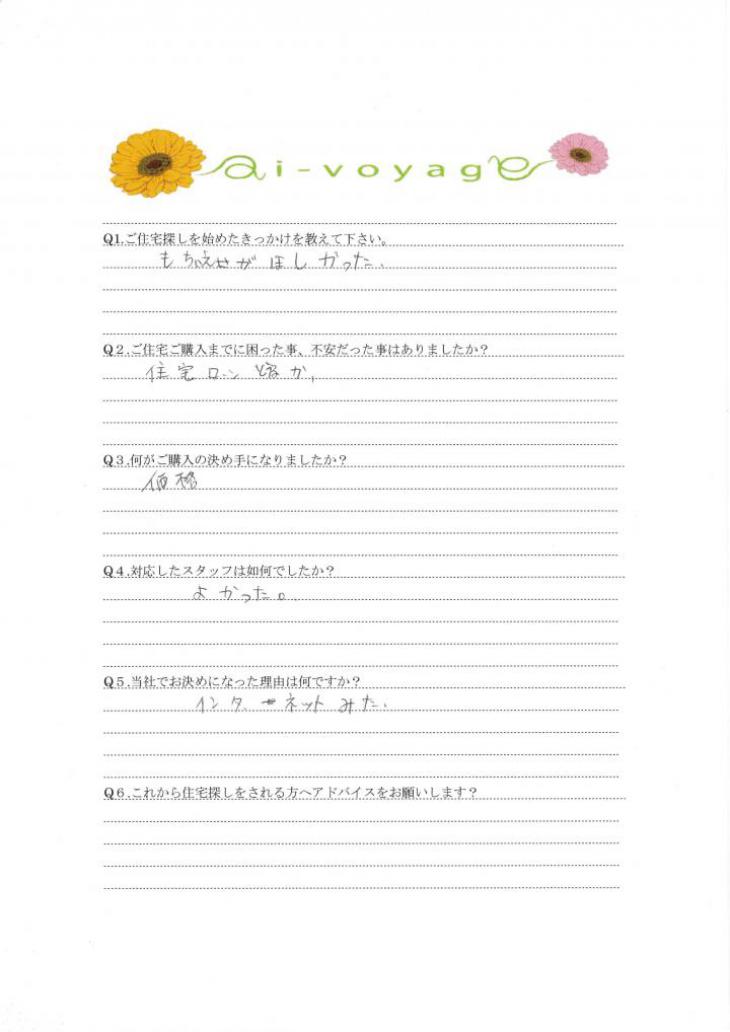 ai-voyage
Q1.ご住宅探しを始めたきっかけを教えて下さい。
もちいえがほしかった.
Q2.ご住宅ご購入までに困った事、不安だった事はありましたか?
住宅ローン とか,
Q3.何がご購入の決め手になりましたか?
価格
Q4.対応したスタッフは如何でしたか?
よかった。
Q5.当社でお決めになった理由は何ですか?
インターネットみた.
Q6.これから住宅探しをされる方へアドバイスをお願いします?